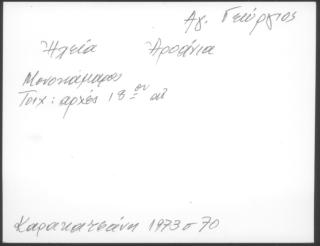 Ἁγ. Γεώργιος
Ἠλεία Ἀροάνια
Μονοκάμαρος
Τοιχ: αρχές 18ου αἰ
Καρακατσάνη 1973 σ 70